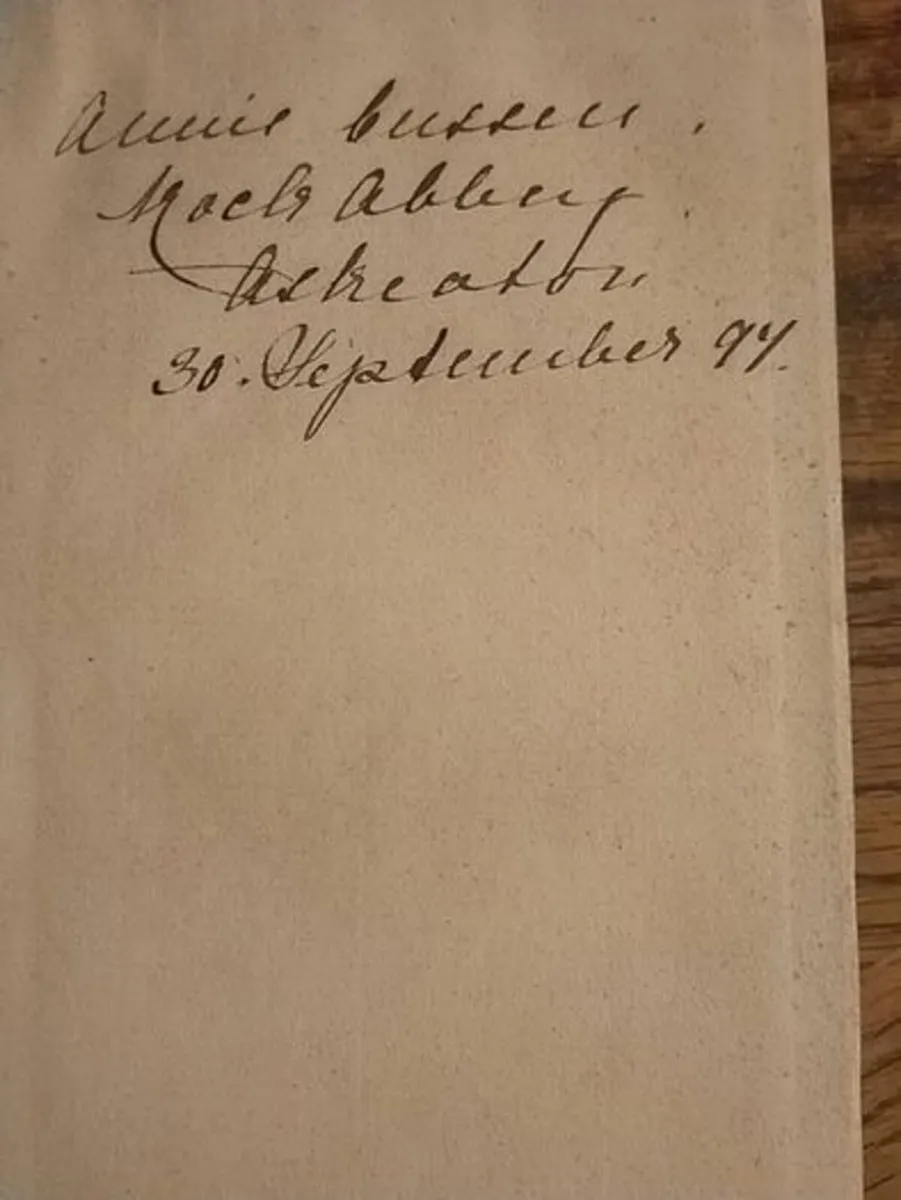 Annie Cussen.
Mock Abbey.
Askeaton
30. September 94.